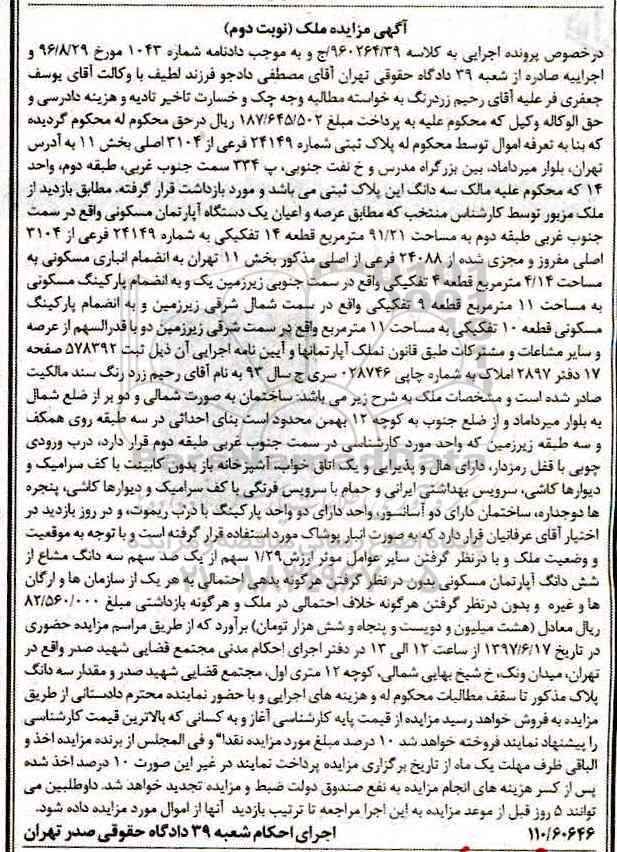 آگهی مزایده ملک (نوبت دوم)
درخصوص پرونده اجرایی به کلاسه ۹۶۰۲۶۴/۳۹/ج و به موجب دادنامه شماره ۱۰۴۳ مورخ ۹۶/۸/۲۹ و
اجراییه صادره از شعبه ۳۹ دادگاه حقوقی تهران آقای مصطفی دادجو فرزند لطیف با وکالت آقای یوسف
جعفری فر علیه آقای رحیم زردرنگ به خواسته مطالبه وجه چک و خسارت تاخیر تادیه و هزینه دادرسی و
حق الوکاله وکیل که محکوم علیه به پرداخت مبلغ ۱۸۷/۶۴۵/۵۰۲ ریال درحق محکوم له محکوم گردیده
که بنا به تعرفه اموال توسط محکوم له پلاک ثبتی شماره ۲۴۱۴۹ فرعی از ۳۱۰۴ اصلی بخش ۱۱ به آدرس
تهران، بلوار میرداماد، بین بزرگراه مدرس و خ نفت جنوبی، پ ۳۳۴ سمت جنوب غربی، طبقه دوم، واحد
۱۴ که محکوم علیه مالک سه دانگ این پلاک ثبتی می باشد و مورد بازداشت قرار گرفته. مطابق بازدید از
ملک مزبور توسط کارشناس منتخب که مطابق عرصه و اعیان یک دستگاه آپارتمان مسکونی واقع در سمت
جنوب غربی طبقه دوم به مساحت ۹۱/۲۱ مترمربع قطعه ۱۴ تفکیکی به شماره ۲۴۱۴۹ فرعی از ۳۱۰۴
اصلی مفروز و مجزی شده از ۲۴۰۸۸ فرعی از اصلی مذکور بخش ۱۱ تهران به انضمام انباری مسکونی به
مساحت ۴/۱۴ مترمربع قطعه ۴ تفکیکی واقع در سمت جنوبی زیرزمین یک و به انضمام پارکینگ مسکونی
به مساحت ۱۱ مترمربع قطعه ۹ تفکیکی واقع در سمت شمال شرقی زیرزمین و به انضمام پارکینگ
مسکونی قطعه ۱۰ تفکیکی به مساحت ۱۱ مترمربع واقع در سمت شرقی زیرزمین دو با قدرالسهم از عرصه
و سایر مشاعات و مشترکات طبق قانون تملک آپارتمانها و آیین نامه اجرایی آن ذیل ثبت ۵۷۸۳۹۲ صفحه
۱۷ دفتر ۲۸۹۷ املاک به شماره چاپی ۰۲۸۷۴۶ سری ج سال ۹۳ به نام آقای رحیم زرد رنگ سند مالکیت
صادر شده است و مشخصات ملک به شرح زیر می باشد: ساختمان به صورت شمالی و دو بر از ضلع شمال
به بلوار میرداماد و از ضلع جنوب به کوچه ۱۲ بهمن محدود است بنای احداثی در سه طبقه روی همکف
و سه طبقه زیرزمین که واحد مورد کارشناسی در سمت جنوب غربی طبقه دوم قرار دارد، درب ورودی
چوبی با قفل رمزدار، دارای هال و پذیرایی و یک اتاق خواب، آشپزخانه باز بدون کابینت با کف سرامیک و
دیوارها کاشی، سرویس بهداشتی ایرانی و حمام با سرویس فرنگی با کف سرامیک و دیوارها کاشی، پنجره
ها دوجداره، ساختمان دارای دو آسانسور، واحد دارای دو واحد پارکینگ با درب ریموت، و در روز بازدید در
اختیار آقای عرفانیان قرار دارد که به صورت انبار پوشاک مورد استفاده قرار گرفته است و با توجه به موقعیت
و وضعیت ملک و با درنظر گرفتن سایر عوامل موثر ارزش ۱/۲۹ سهم از یک صد سهم سه دانگ مشاع از
شش دانگ آپارتمان مسکونی بدون در نظر گرفتن هرگونه بدهی احتمالی به هر یک از سازمان ها و ارگان
ها و غیره و بدون درنظر گرفتن هرگونه خلاف احتمالی در ملک و هرگونه بازداشتی مبلغ ۸۲/۵۶۰/۰۰۰
ریال معادل (هشت میلیون و دویست و پنجاه و شش هزار تومان) برآورد که از طریق مراسم مزایده حضوری
در تاریخ ۱۳۹۷/۶/۱۷ از ساعت ۱۲ الی ۱۳ در دفتر اجرای احکام مدنی مجتمع قضایی شهید صدر واقع در
تهران، میدان ونک، خ شیخ بهایی شمالی، کوچه ۱۲ متری اول، مجتمع قضایی شهید صدر و مقدار سه دانگ
پلاک مذکور تا سقف مطالبات محکوم له و هزینه های اجرایی و با حضور نماینده محترم دادستانی از طریق
مزایده به فروش خواهد رسید مزایده از قیمت پایه کارشناسی آغاز و به کسانی که بالاترین قیمت کارشناسی
را پیشنهاد نمایند فروخته خواهد شد ۱۰ درصد مبلغ مورد مزایده نقدا" و فی المجلس از برنده مزایده اخذ و
الباقی ظرف مهلت یک ماه از تاریخ برگزاری مزایده پرداخت نمایند در غیر این صورت ۱۰ درصد اخذ شده
پس از کسر هزینه های انجام مزایده به نفع صندوق دولت ضبط و مزایده تجدید خواهد شد. داوطلبین می
توانند ۵ روز قبل از موعد مزایده به این اجرا مراجعه تا ترتیب بازدید آنها از اموال مورد مزایده داده شود.
۱۱۰/۶۰۶۴۶ اجرای احکام شعبه ۳۹ دادگاه حقوقی صدر تهران